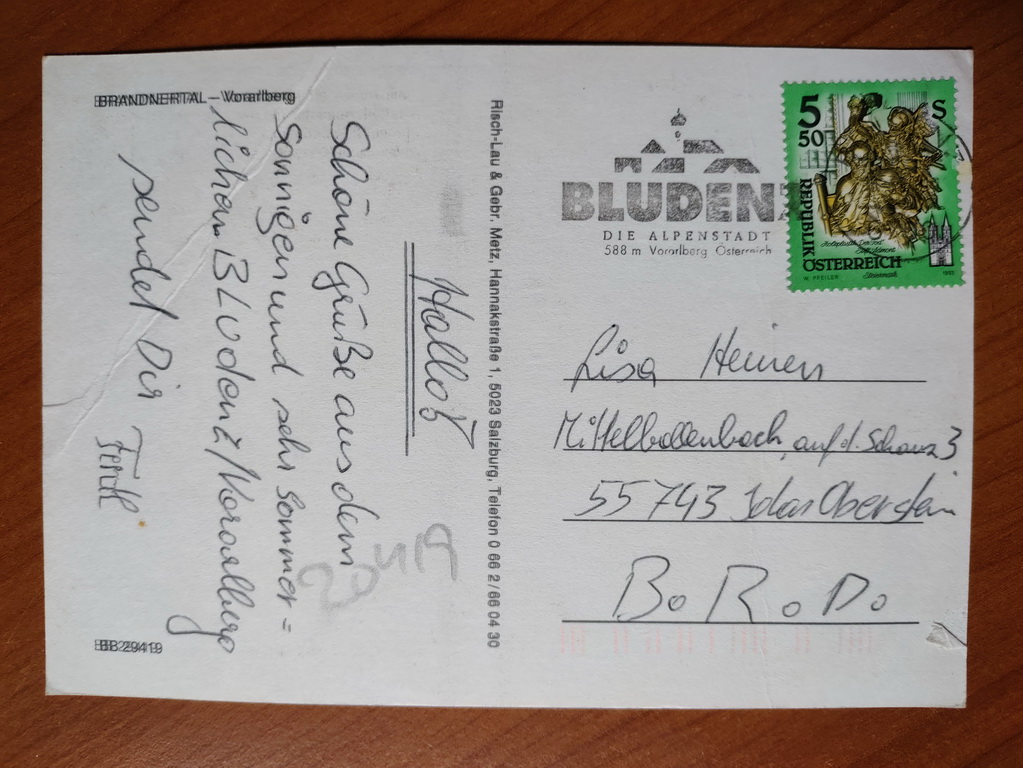 BRANDNERTAL – Vorarlberg
Hallo!
Schöne Grüße aus dem
Sonnigen und sehr sommer=
lichem BLudenz/Vorarlberg
sendet Dir
BB 29419
20419
Risch-Lau & Gebr. Metz, Hannakstraße 1, 5023 Salzburg, Telefon 0 66 2/66 04 30
BLUDENZ
DIE ALPENSTADT
588 m Vorarlberg Österreich
5 S
50
REPUBLIK
ÖSTERREICH
W. PFEILER
Steiermark
Lisa Heinen
Mittelbollenbach, auf d. Schanz 3
55743 Idar Oberstein
B. R. D.